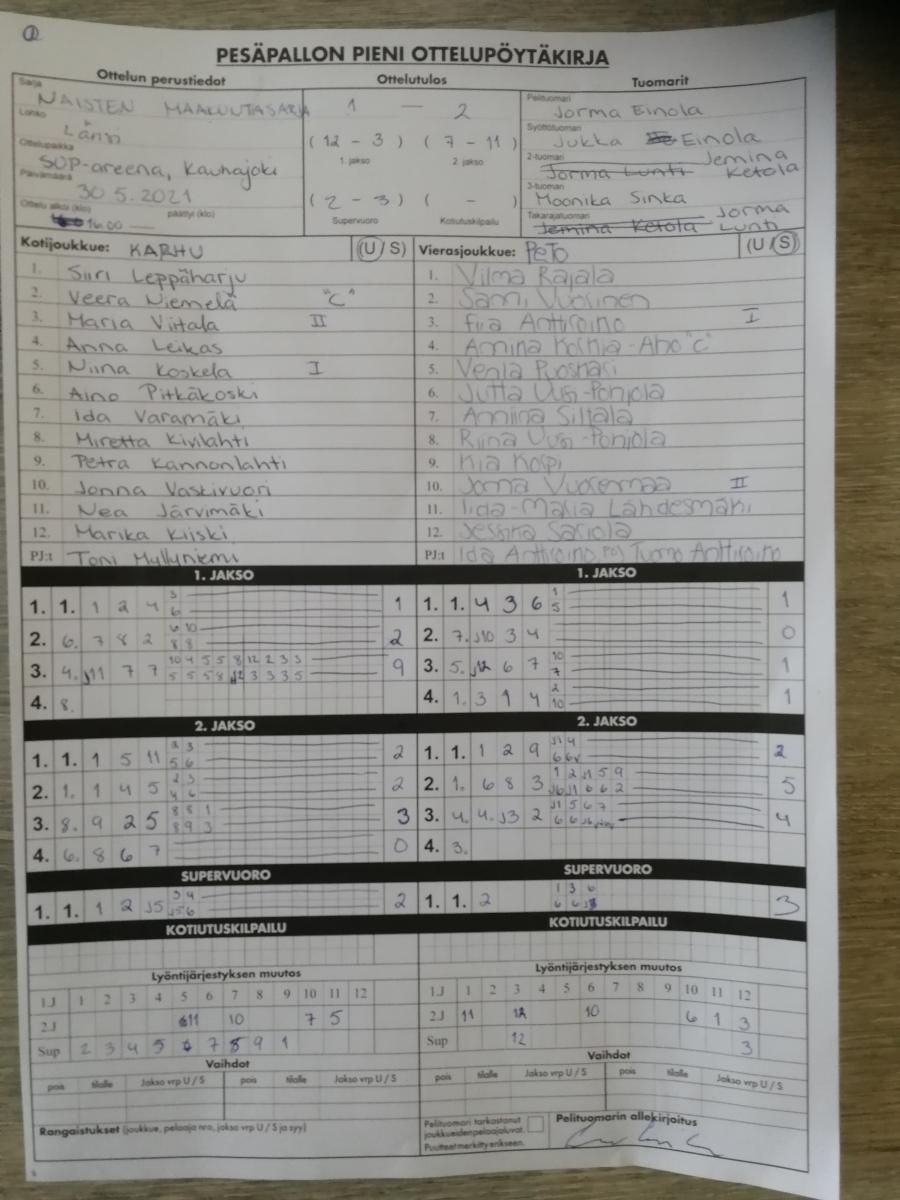 PESÄPALLON PIENI OTTELUPÖYTÄKIRJA
Ottelun perustiedot Ottelutulos Tuomarit
Sarja NAISTEN MAAKUNTASARJA 1 — 2
Lohko Länsi (12 - 3) (7 - 11)
1. jakso 2. jakso
Ottelupaikka SOP-areena, Kauhajoki
Päivämäärä 30.5.2021 (2 - 3) ( - )
Ottelu alkoi (klo) 16.00 päättyi (klo) Supervuoro Kotiutuskilpailu
Pelituomari Jorma Einola
Syöttötuomari Jukka Einola
2-tuomari Jorma Lunti Jemina Ketola
3-tuomari Moonika Sinka
Takarajatuomari Jemina Ketola Jorma Lunti
Kotijoukkue: KARHU (U/S) Vierasjoukkue: PeTo (U/S)
1. Siiri Leppäharju 1. Vilma Rajala
2. Veera Niemelä "C" 2. Sanni Vuorinen
3. Maria Viitala II 3. Anttiroino I
4. Anna Leikas 4. -Aho "C"
5. Niina Koskela I 5. Venla
6. Aino Pitkäkoski 6. Jutta Uusi-Pohjola
7. Ida Varamäki 7. Anniina Siltala
8. Miretta Kivilahti 8. Riina Uusi-Pohjola
9. Petra Kannonlahti 9. Kia Kospi
10. Jonna Vaskivuori 10. Jonna Vuorenmaa II
11. Nea Järvimäki 11. Iida-Maria Lähdesmäki
12. Marika Kijski 12. Jessina Sariola
PJ:t Toni Myllyniemi PJ:t Ida Anttiroino, Tuomo Anttiroino
1. JAKSO 1. JAKSO
1. 1. 1 2 4 3 6 1 1. 1. 4 3 6 1 5 1
2. 6. 7 8 2 6 10 8 8 2 2. 7. J10 3 4 0
3. 4. J11 7 7 10 4 5 5 8 12 2 3 3 5 5 5 8 J12 3 3 3 5 9 3. 5. J12 6 7 10 7 1
4. 8. 4. 1. 3 1 4 2 10 1
2. JAKSO 2. JAKSO
1. 1. 1 5 11 2 3 5 6 2 1. 1. 1 2 9 J1 4 2
2. 1. 1 4 5 2 3 4 6 2 2. 1. 6 8 3 1 2 J1 5 9 5
3. 8. 9 2 5 8 8 1 8 9 3 3 3. 4. 4. J3 2 J1 5 6 7 4
4. 6. 8 6 7 0 4. 3.
SUPERVUORO SUPERVUORO
1. 1. 1 2 J5 3 4 J5 6 2 1. 1. 2 1 3 6 3
KOTIUTUSKILPAILU KOTIUTUSKILPAILU
Lyöntijärjestyksen muutos Lyöntijärjestyksen muutos
1J 1 2 3 4 5 6 7 8 9 10 11 12 1J 1 2 3 4 5 6 7 8 9 10 11 12
2J 11 10 7 5 2J 11 12 10 6 1 3
Sup 2 3 4 5 6 7 8 9 1 Sup 12 3
Vaihdot Vaihdot
pois tilalle Jakso vrp U / S pois tilalle Jakso vrp U / S pois tilalle Jakso vrp U / S pois tilalle Jakso vrp U / S
Rangaistukset (joukkue, pelaaja nro, jakso vrp U / S ja syy)
Pelituomari tarkastanut joukkueiden pelaajaluvat.
Puutteet merkitty erikseen.
Pelituomarin allekirjoitus